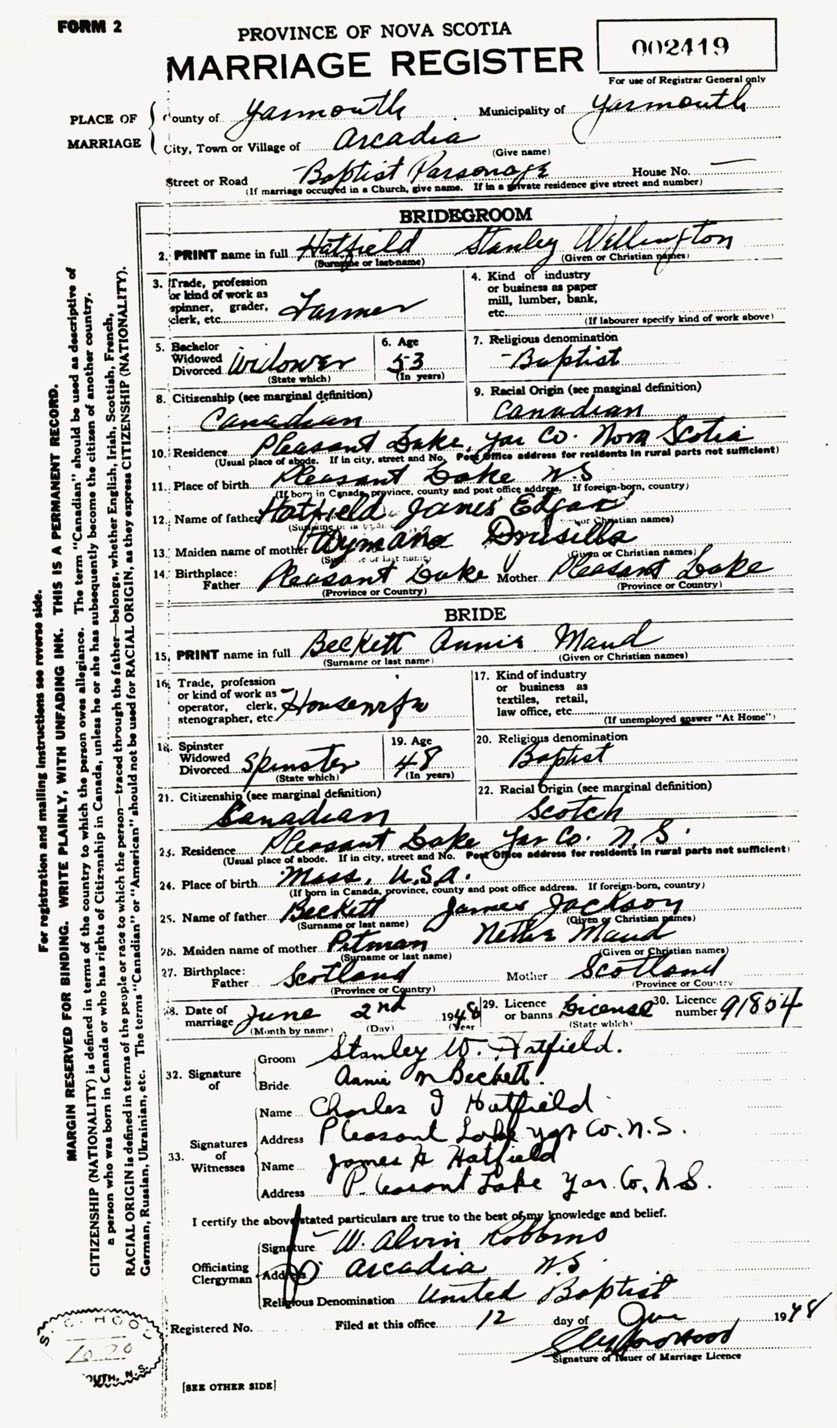 FORM 2
PROVINCE OF NOVA SCOTIA
MARRIAGE REGISTER
002419
For use of Registrar General only
PLACE OF MARRIAGE
County of Yarmouth Municipality of Yarmouth
City, Town or Village of Arcadia
(Give name)
Street or Road Baptist Parsonage House No. —
(If marriage occurred in a Church, give name. If in a private residence give street and number)
BRIDEGROOM
2. PRINT name in full Hatfield Stanley Wellington
(Surname or last name) (Given or Christian names)
3. Trade, profession or kind of work as spinner, grader, clerk, etc. Farmer
4. Kind of industry or business as paper mill, lumber, bank, etc.
(If labourer specify kind of work above)
5. Bachelor Widowed Divorced Widower
(State which)
6. Age 53
(In years)
7. Religious denomination
Baptist
8. Citizenship (see marginal definition)
Canadian
9. Racial Origin (see marginal definition)
Canadian
10. Residence Pleasant Lake, Yar Co. Nova Scotia
(Usual place of abode. If in city, street and No. Post Office address for residents in rural parts not sufficient)
11. Place of birth Pleasant Lake NS
(If born in Canada, province, county and post office address. If foreign-born, country)
12. Name of father Hatfield James Edgar
(Surname or last name) (Given or Christian names)
13. Maiden name of mother Wyman Drusilla
(Surname or last name) (Given or Christian names)
14. Birthplace: Father Pleasant Lake Mother Pleasant Lake
(Province or Country) (Province or Country)
BRIDE
15. PRINT name in full Beckett Annie Maud
(Surname or last name) (Given or Christian names)
16. Trade, profession or kind of work as operator, clerk, stenographer, etc. Housewife
17. Kind of industry or business as textiles, retail, law office, etc.
(If unemployed answer "At Home")
18. Spinster Widowed Divorced Spinster
(State which)
19. Age 48
(In years)
20. Religious denomination
Baptist
21. Citizenship (see marginal definition)
Canadian
22. Racial Origin (see marginal definition)
Scotch
23. Residence Pleasant Lake Yar Co. N.S.
(Usual place of abode. If in city, street and No. Post Office address for residents in rural parts not sufficient)
24. Place of birth Mass. U.S.A.
(If born in Canada, province, county and post office address. If foreign-born, country)
25. Name of father Beckett James Jackson
(Surname or last name) (Given or Christian names)
26. Maiden name of mother Pitman Nettie Maud
(Surname or last name) (Given or Christian names)
27. Birthplace: Father Scotland Mother Scotland
(Province or Country) (Province or Country)
28. Date of marriage June 2nd 1948
(Month by name) (Day) (Year)
29. Licence or banns License
(State which)
30. Licence number 91804
32. Signature of
Groom Stanley W. Hatfield.
Bride Annie M Beckett.
33. Signatures of Witnesses
Name Charles I Hatfield
Address Pleasant Lake Yar Co. N.S.
Name James H Hatfield
Address Pleasant Lake Yar. Co, N.S.
I certify the above stated particulars are true to the best of my knowledge and belief.
Officiating Clergyman
Signature W. Alvin Robbins
Address Arcadia N.S.
Religious Denomination United Baptist
Registered No. Filed at this office 12 day of June 1948
Signature of Issuer of Marriage Licence
[SEE OTHER SIDE]
For registration and mailing instructions see reverse side.
MARGIN RESERVED FOR BINDING. WRITE PLAINLY, WITH UNFADING INK. THIS IS A PERMANENT RECORD.
CITIZENSHIP (NATIONALITY) is defined in terms of the country to which the person owes allegiance. The term "Canadian" should be used as descriptive of
a person who was born in Canada or who has rights of Citizenship in Canada, unless he or she has subsequently become the citizen of another country.
RACIAL ORIGIN is defined in terms of the people or race to which the person—traced through the father—belongs, whether English, Irish, Scottish, French,
German, Russian, Ukrainian, etc. The terms "Canadian" or "American" should not be used for RACIAL ORIGIN, as they express CITIZENSHIP (NATIONALITY).